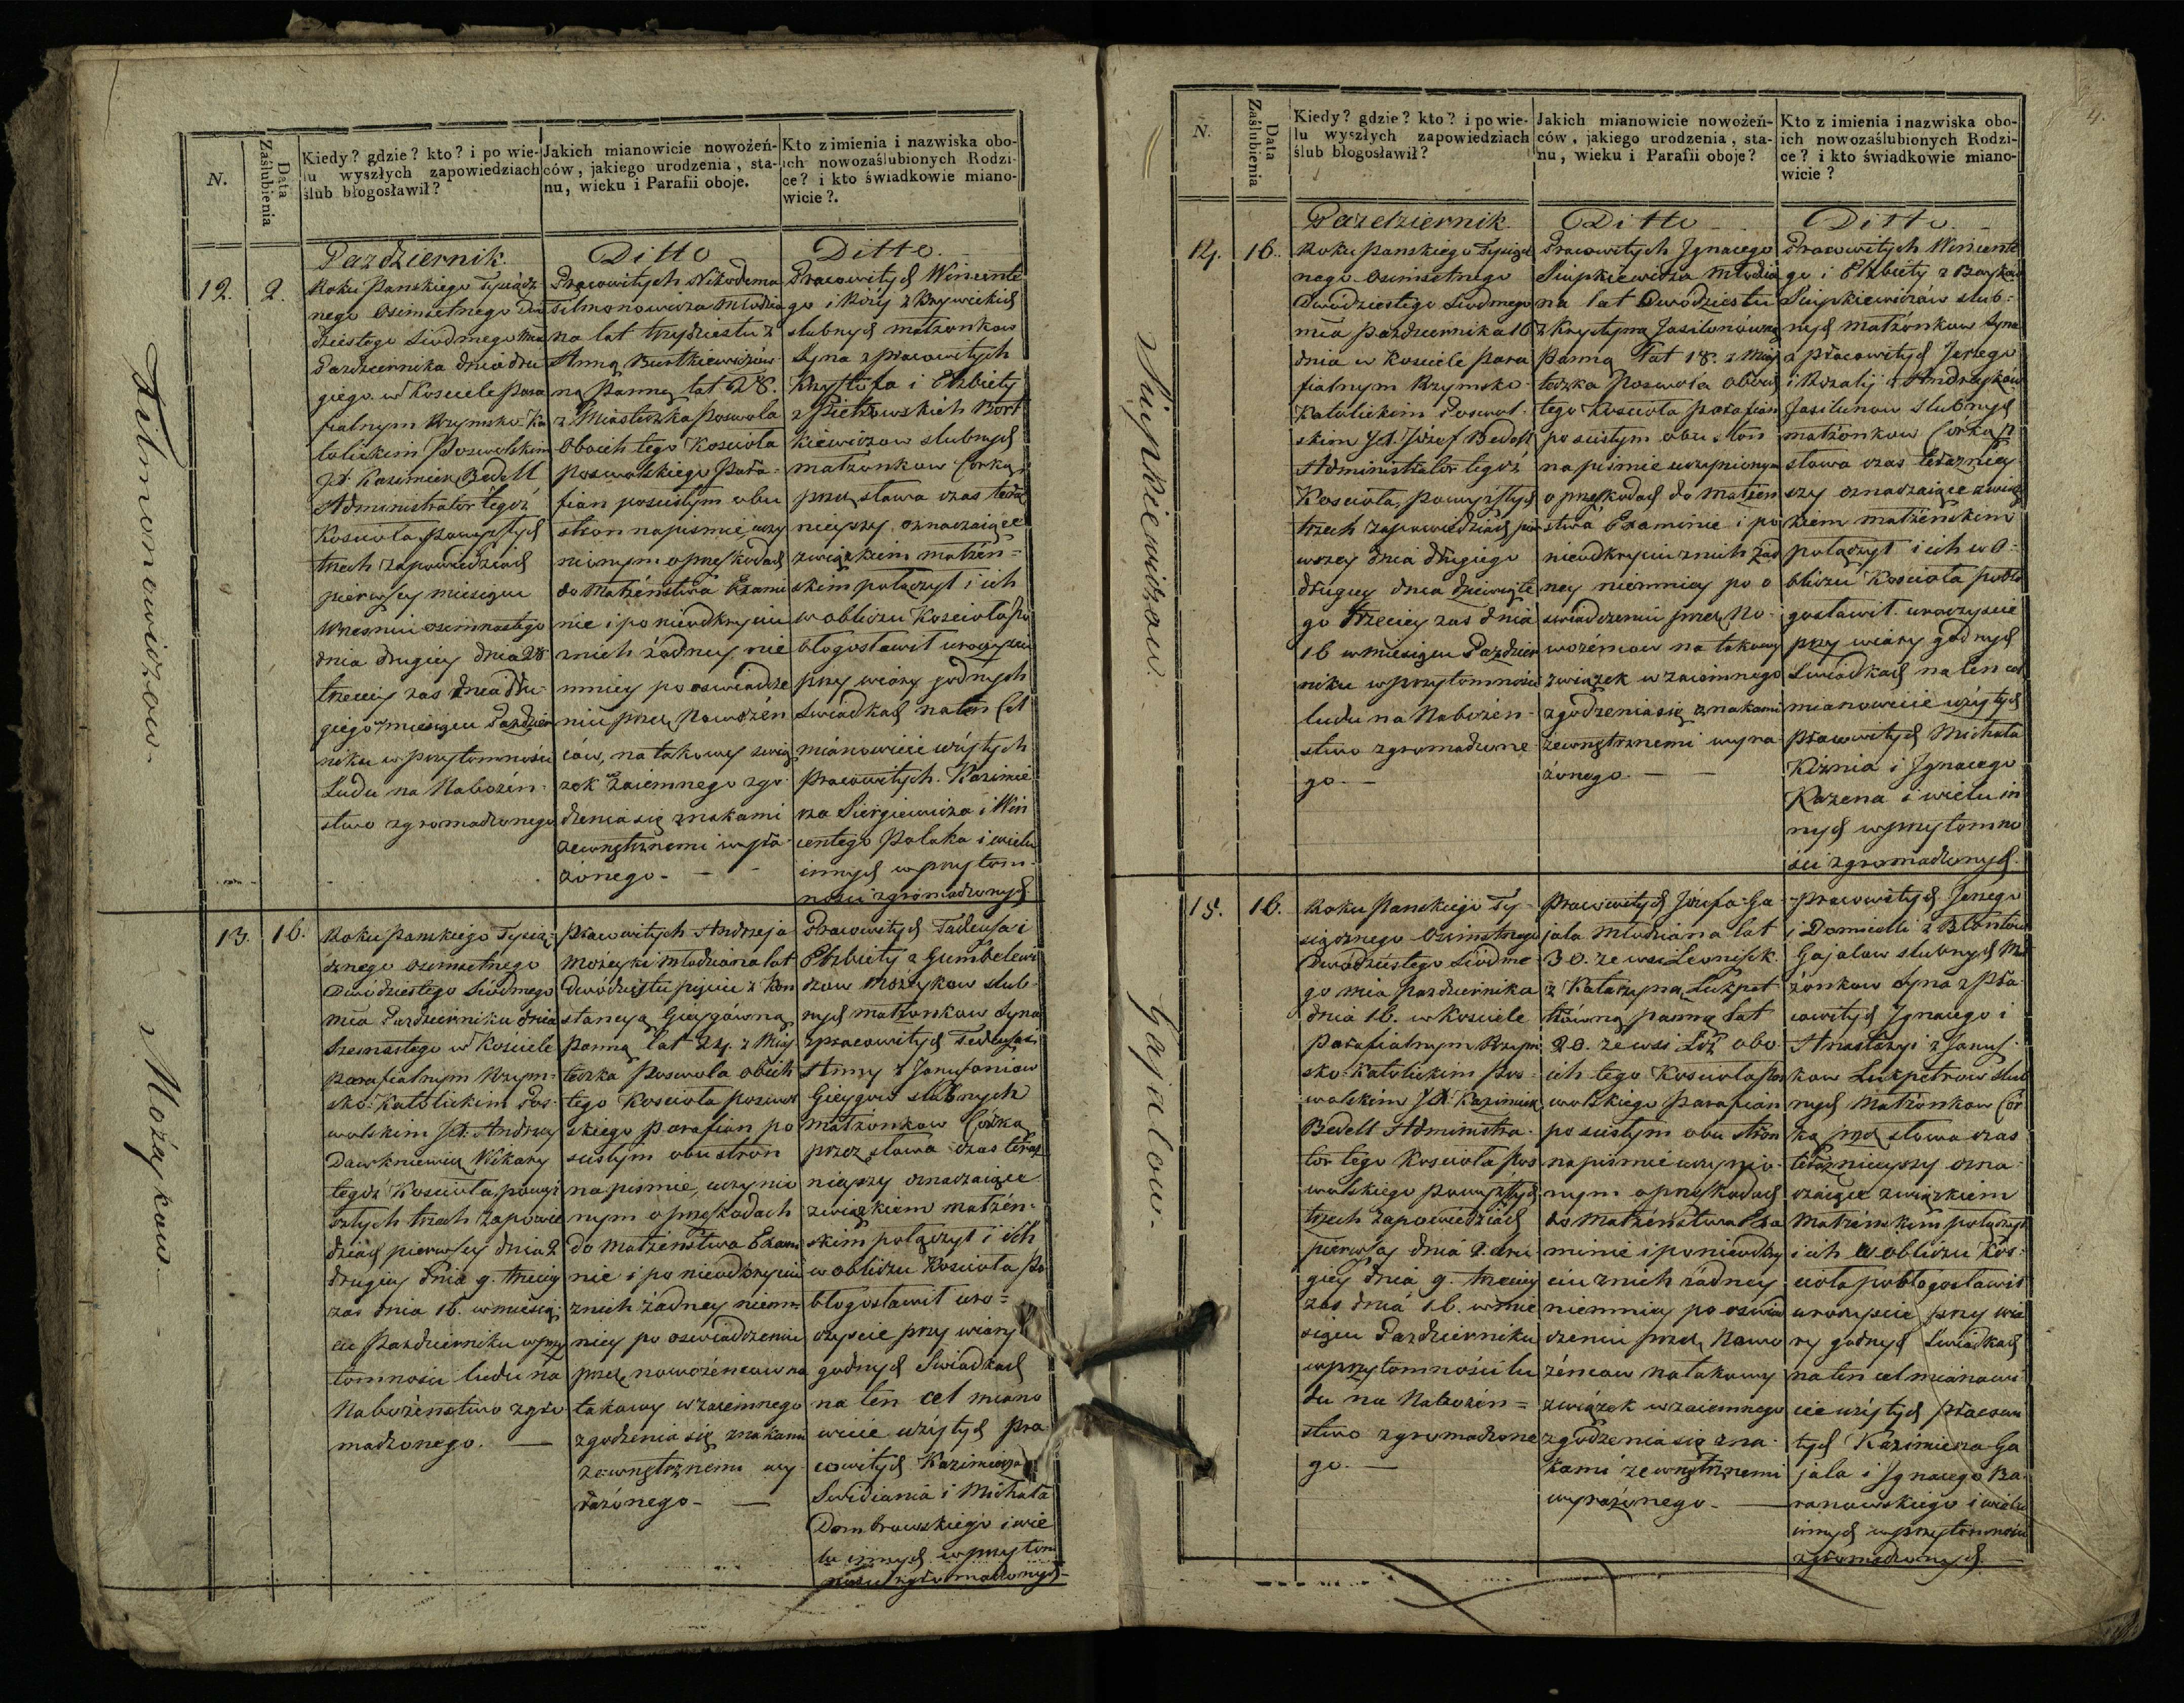 N.
Data Zaślubienia
Kiedy? gdzie? kto? i po wie-
lu wyszłych zapowiedziach
ślub błogosławił?
Jakich mianowicie nowożeń-
ców, jakiego urodzenia, sta-
nu, wieku i Parafii oboje.
Kto z imienia i nazwiska obo-
ich nowozaślubionych Rodzi-
ce? i kto świadkowie miano-
wicie?.
Filmonowiczow
12.
2.
Pazdziernik.
Roku Panskiego Tysiącz
nego Osimsetnego Dwu
dziestego Siodmego Mca
Pazdziernika dnia dru
giego w Kosciele Para
fialnym Rzymsko-Ka
tolickim Poswolskim
JX. Kazimierz Bedell
Administrator tegoż
Kosciola, po wyszłych
trzech zapowiedziach
pierwszey miesiącu
Wrzesniu osimnastego
dnia drugiey dnia 28
trzeciey zas dnia dru-
giego w miesiącu Pazdzier
niku w przytomności
Ludu na Nabożeń-
stwo zgromadzonego
Ditto
Pracowitych Nikodema
Filmonowicza Młodzia
na lat trzydziestu z
Anną Burtkiewiczow
ną Panną lat 28.
z Miasteczka Poswola
Oboich tego Kosciola
Poswolskiego Para-
fian po scisłym obu
stron na pismie uczy
nionym o przeszkodach
do Małżeństwa Exami
nie i po nieodkryciu
znich żadney nie
mniey po oswiadcze
niu przez Nowożeń
ców, na takowy zwią
zek wzaiemnego zgo-
dzenia się znakami
zewnętrznemi wyra-
żonego.
Ditto.
Pracowitych Wincente
go i Róży z Krywickich
slubnych małżonkow
Syna z pracowitych
Krysztofa i Elzbiety
z Pietkowskich Bort
kiewiczow slubnych
małżonkow Corką
przez słowa czas teraz
nieyszy oznaczaiące
związkiem małżeń-
skim połączył i ich
w obliczu Kosciola po
błogosławił uroczyscie
przy wiary godnych
Swiadkach na ten Cel
mianowicie użytych
Pracowitych Kazimie
rza Siergiewicza i Win
centego Polaka i wielu
innych w przytom-
nosci zgromadzonych.
Możeykow
13.
16.
Roku Panskiego Tysią-
cznego Osimsetnego
Dwódziestego Siodmego
Mca Pazdziernika dnia
Szesnastego w Kosciele
Parafialnym Rzym-
sko-Katolickim Pos-
wolskim JX. Andrzey
Dawkniewicz Wikary
tegoż Kosciola, po wysz
szłych trzech zapowie
dziach pierwszey dnia 2
drugiey dnia 9. trzeciey
zas dnia 16. w miesią-
cu Pazdzierniku w przy
tomnosci ludu na
Nabożenstwo zgro
madzonego.
Pracowitych Andrzeja
Możeyki Młodziana lat
Dwódziestu pięciu z Kon
stancyą Gieygówną
Panną lat 24. z Mias
teczka Poswola obóch
tego Kosciola poswol
skiego parafian po
scisłym obu stron
na pismie, uczynio
nym o przeszkodach
do Małżeństwa Exami
nie i po nieodkryciu
znich żadney niem-
niey po oswiadczeniu
przez nowożeńcow na
takowy wzaiemnego
zgodzenia się znakami
zewnętrznemi wy-
rażonego.
Pracowitych Tadeusza i
Elzbiety z Gumbelewi
czow Możeykow slub-
nych małżonkow Syna
z pracowitych Tadeusza i
Anny z Janusaniow
Gieygow slubnych
małżonkow Corką
przez słowa czas teraz
nieyszy oznaczaiące
związkiem małżeń-
skim połączył i ich
w obliczu Kosciola Po
błogosławił uro-
czyscie przy wiary
godnych Swiadkach
na ten cel miano
wicie użytych pra
cowitych Kazimierza
Swidiania i Michała
Dombrowskiego i wie
lu innych w przytom
nosci zgromadzonych.
4.
N.
Data Zaślubienia
Kiedy? gdzie? kto? i po wie-
lu wyszłych zapowiedziach
ślub błogosławił?
Jakich mianowicie nowożeń-
ców, jakiego urodzenia, sta-
nu, wieku i Parafii oboje?
Kto z imienia i nazwiska obo-
ich nowozaślubionych Rodzi-
ce? i kto świadkowie miano-
wicie?
Siupkiewiczow.
14.
16.
Pazdziernik.
Roku Panskiego Tysiącz
nego Osimsetnego
Dwódziestego Siodmego
mca Pazdziernika 16
dnia w Kosciele Para
fialnym Rzymsko-
Katolickim Poswol-
skim JX. Józef Bedell
Administrator tegoż
Kosciola, po wyszłych
trzech zapowiedziach pier
wszey dnia drugiego
drugiey dnia dziewiąte
go trzeciey zas dnia
16 w miesiącu Pazdzier
niku w przytomności
ludu na Nabożeń-
stwo zgromadzone
go.
Ditto
Pracowitych Ignacego
Siupkiewicza Młodzia
na lat Dwódziestu
z Krystyną Jasilonówną
Panną lat 18. z Mias
teczka Poswola oboich
tego Kosciola parafian
po scisłym obu stron
na pismie uczynionym
o przeszkodach do Małżeń
stwa Examinie i po
nieodkryciu znich żad
ney niemniey po o
swiadczeniu przez No-
wożeńcow na takowy
związek w zaiemnego
zgodzenia się znakami
zewnętrznemi wyra-
żonego.
Ditto.
Pracowitych Wincente
go i Elzbiety z Barykow
Siupkiewiczów slub-
nych małżonkow Syna
z pracowitych Jerzego
i Rozalij z Andraszków
Jasilunow slubnych
małżonkow Corką p
słowa czas terazniey
szy oznaczaiące zwiąs
kiem małżenskim
połączył i ich w o-
bliczu Kosciola pobło
gosławił uroczyscie
przy wiary godnych
Swiadkach na ten cel
mianowicie użytych
Pracowitych Michała
Kiznia i Ignacego
Kazena i wielu in
nych w przytomno
sci zgromadzonych.
Gajalow.
15.
16.
Roku Panskiego Ty-
siącznego Osimsetnego
Dwódziestego Siódme-
go Mca pazdziernika
dnia 16. w Kosciele
Parafialnym Rzym
sko-Katolickim Pos-
wolskim JX. Kazimierz
Bedell Administra-
tor tego Kosciola pos
wolskiego po wyszłych
trzech zapowiedziach
pierwszey dnia 2. dru-
giey dnia 9. trzeciey
zas dnia 16. w mie
siącu Pazdzierniku
w przytomnósci lu
du na Nabożeń-
stwo zgromadzone
go.
Pracowitych Józefa Ga-
jala Młodziana lat
30. ze wsi Leoniszk.
z Katarzyną Lukpet
równą panną lat
20. ze wsi Łoz obo
ich tego Kosciola Pos
wolskiego parafian
po scisłym obu stron
na pismie uczynio-
nym o przeszkodach
do Małżeństwa Exa
minie i po nieodkry
ciu znich żadney
niemniey po oswiad
czeniu przez Nowo
żeńcow na takowy
związek wzaiemnego
zgodzenia się zna-
kami zewnętrznemi
wyrażonego.
Pracowitych Jerzego
i Domicelli z Blontow
Gajalow slubnych Mał
żonkow Syna z Pra-
cowitych Ignacego i
Anastazyi z Janusz-
kow Lukpetrow slub
nych Małżonkow Cór
ką przez słowa czas
teraznieyszy ozna-
czaiące związkiem
Małżenskim połączył
i ich w obliczu Kos-
ciola pobłogosławił
uroczyscie przy wia
ry godnych Swiadkach
na ten cel mianowi
cie użytych Pracowi
tych Kazimierza Ga
jala i Ignacego Ba-
ranowskiego i wielu
innych w przytomnosci
zgromadzonych.